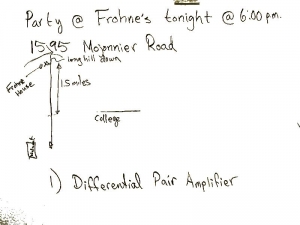 Party @ Frohne's tonight @ 6:00 pm.
1595 Mojonnier Road
long hill down
Frohne House
1.5 miles
College
1) Differential Pair Amplifier